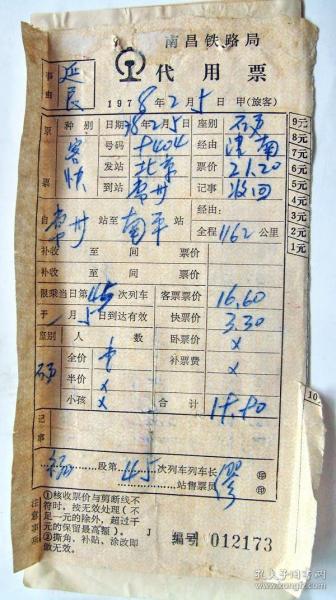 南昌铁路局
代用票
事由 延长
1978年2月5日 甲(旅客)
原票 种别 日期 78.2.5 座别 硬
客快 号码 5404 经由 津南
发站 北京 票价 21.20
到站 常州 记事 收回
自 常州 站至 南平 站 经由: 全程 1162 公里
补收 至 间 票价
补收 至 间 票价
限乘当日第 45 次列车 客票票价 16.60
于 月 5 日到达有效 快票价 3.30
座别 人数 卧票价 ×
硬 全价 补票费 ×
半价 ×
小孩 × 合计
记事
福 段第 45 次列车列车长 印
站售票员 印
注意事项
①核收票价与剪断线不
符时,按无效处理(不
足一元的除外,超过千
元的保留最高额)。
②撕角、补贴、涂改即
做无效。
J
编号 012173
9元
8元
7元
6元
5元
4元
3元
2元
1元
10
孔夫子旧书网